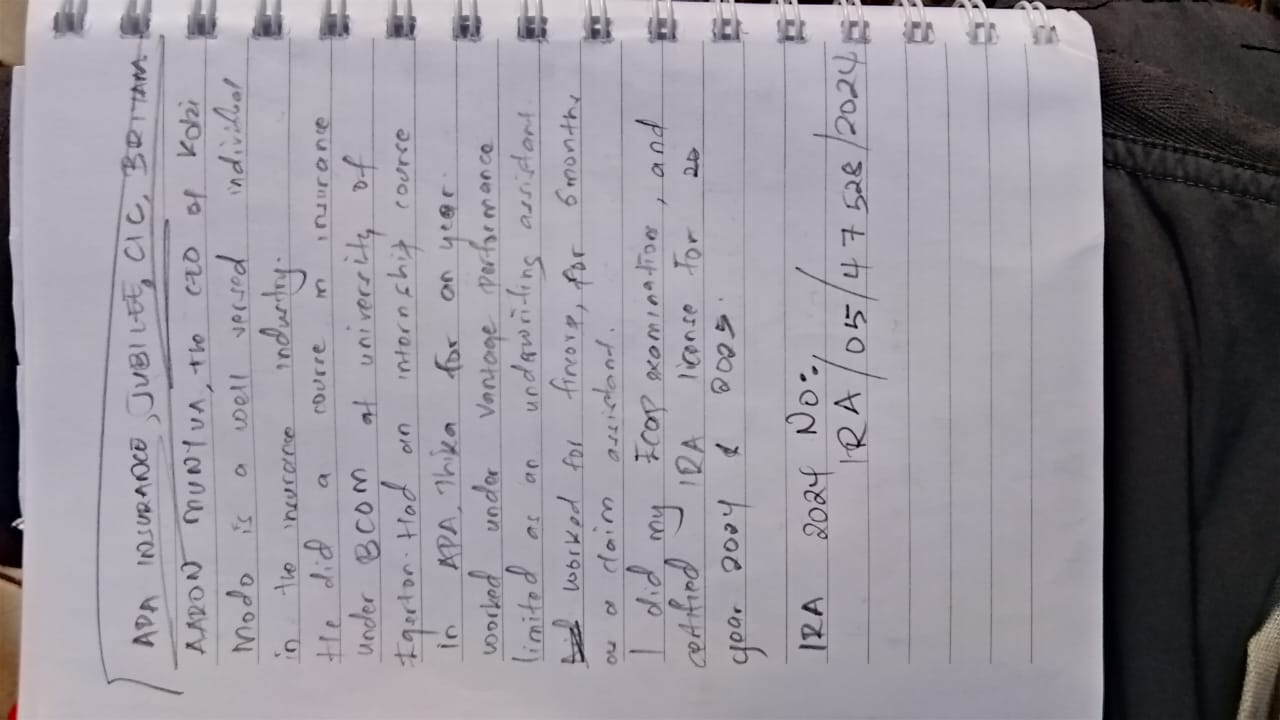 APA INSURANCE, JUBILEE, CIC, BRITAM
AARON MUNYUA, the CEO of Kobi
Modo is a well versed individual
in the insurance industry.
He did a course in insurance
under BCOM at university of
Egerton. Had an internship course
in APA, Thika for an year.
worked under Vantage performance
limited as an underwriting assistant
worked for fincorp, for 6 months
as a claim assistant.
I did my Ecop examination, and
certified IRA license for
year 2024 & 2025.
IRA 2024 No:
IRA/05/47528/2024